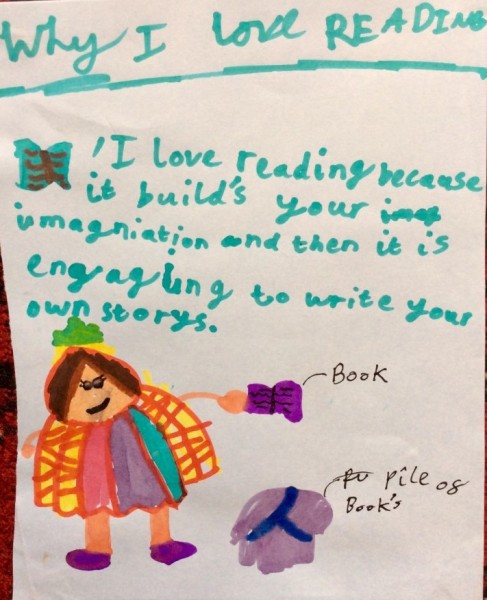 Why I love READING
'I love reading because
it build's your
imagniation and then it is
engaging to write your
own storys.
Book
pîle of
Book's